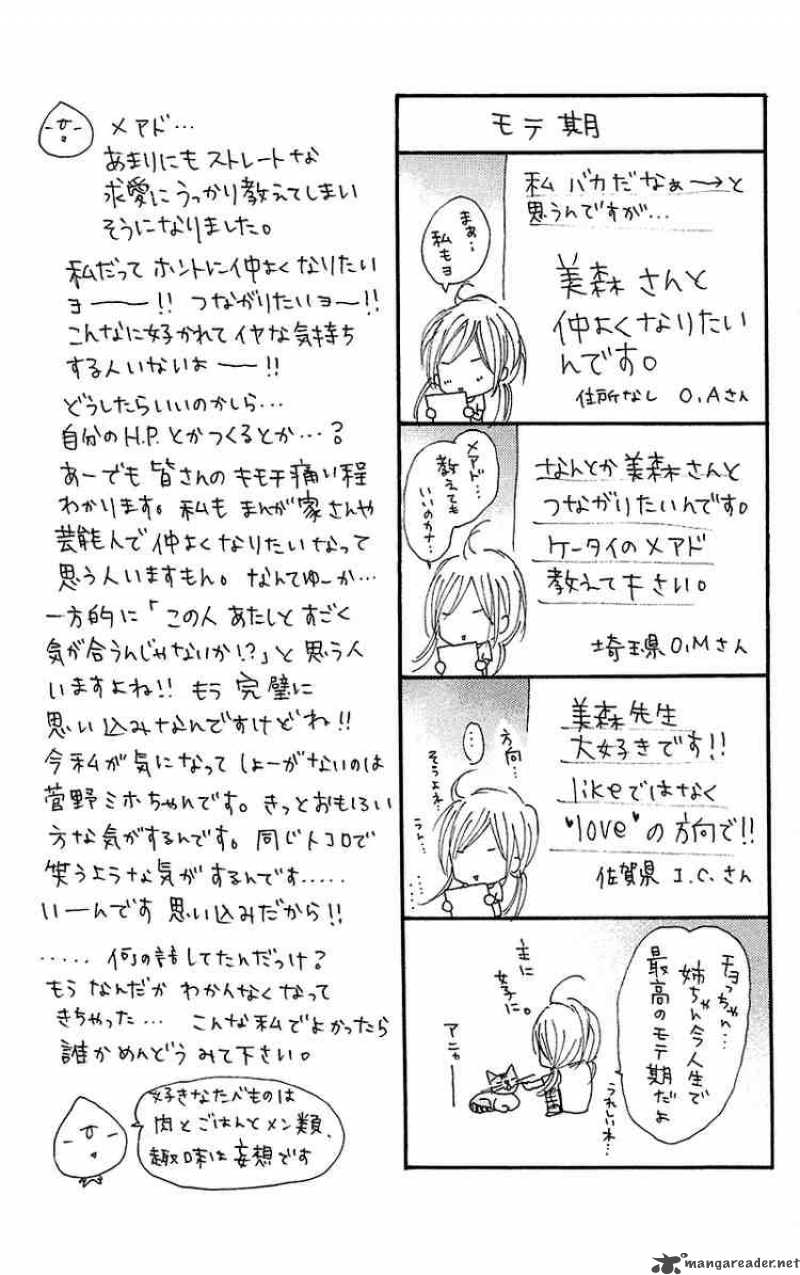 モテ期
私 バカだなぁ〜→と
思うんですが…
美森さんと
仲よくなりたい
んです。
住所なし O,Aさん
まぁ…
私もヨ
なんとか美森さんと
つながりたいんです。
ケータイのメアド
教えて下さい。
埼玉県O,Mさん
メアド…
教えても
いいのカナ…
美森先生
大好きです!!
likeではなく
"love"の方向で!!
佐賀県 I.C.さん
方向…
…
そうよネ…
うん…
チョっちゃん…
姉ちゃん今人生で
最高のモテ期だよ
うれしいね…
主に
女子に。
アニャー
メアド…
あまりにもストレートな
求愛にうっかり教えてしまい
そうになりました。
私だってホントに仲よくなりたい
ヨ――!! つながりたいヨ〜!!
こんなに好かれてイヤな気持ち
する人いないよ――!!
どうしたらいいのかしら…
自分のH.P.とかつくるとか…?
あーでも皆さんのキモチ痛い程
わかります。私もまんが家さんや
芸能人で仲よくなりたいなって
思う人いますもん。なんてゆーか…
一方的に「この人あたしとすごく
気が合うんじゃないか!?」と思う人
いますよね!! もう完璧に
思い込みなんですけどね!!
今私が気になってしょーがないのは
菅野ミホちゃんです。きっとおもしろい
方な気がするんです。同じトコロで
笑うような気がするんです.....
いーんです 思い込みだから!!
..... 何の話してたんだっけ?
もう なんだか わかんなくなって
きちゃった… こんな私でよかったら
誰かめんどうみて下さい。
好きなたべものは
肉とごはんとメン類、
趣味は妄想です
mangareader.net